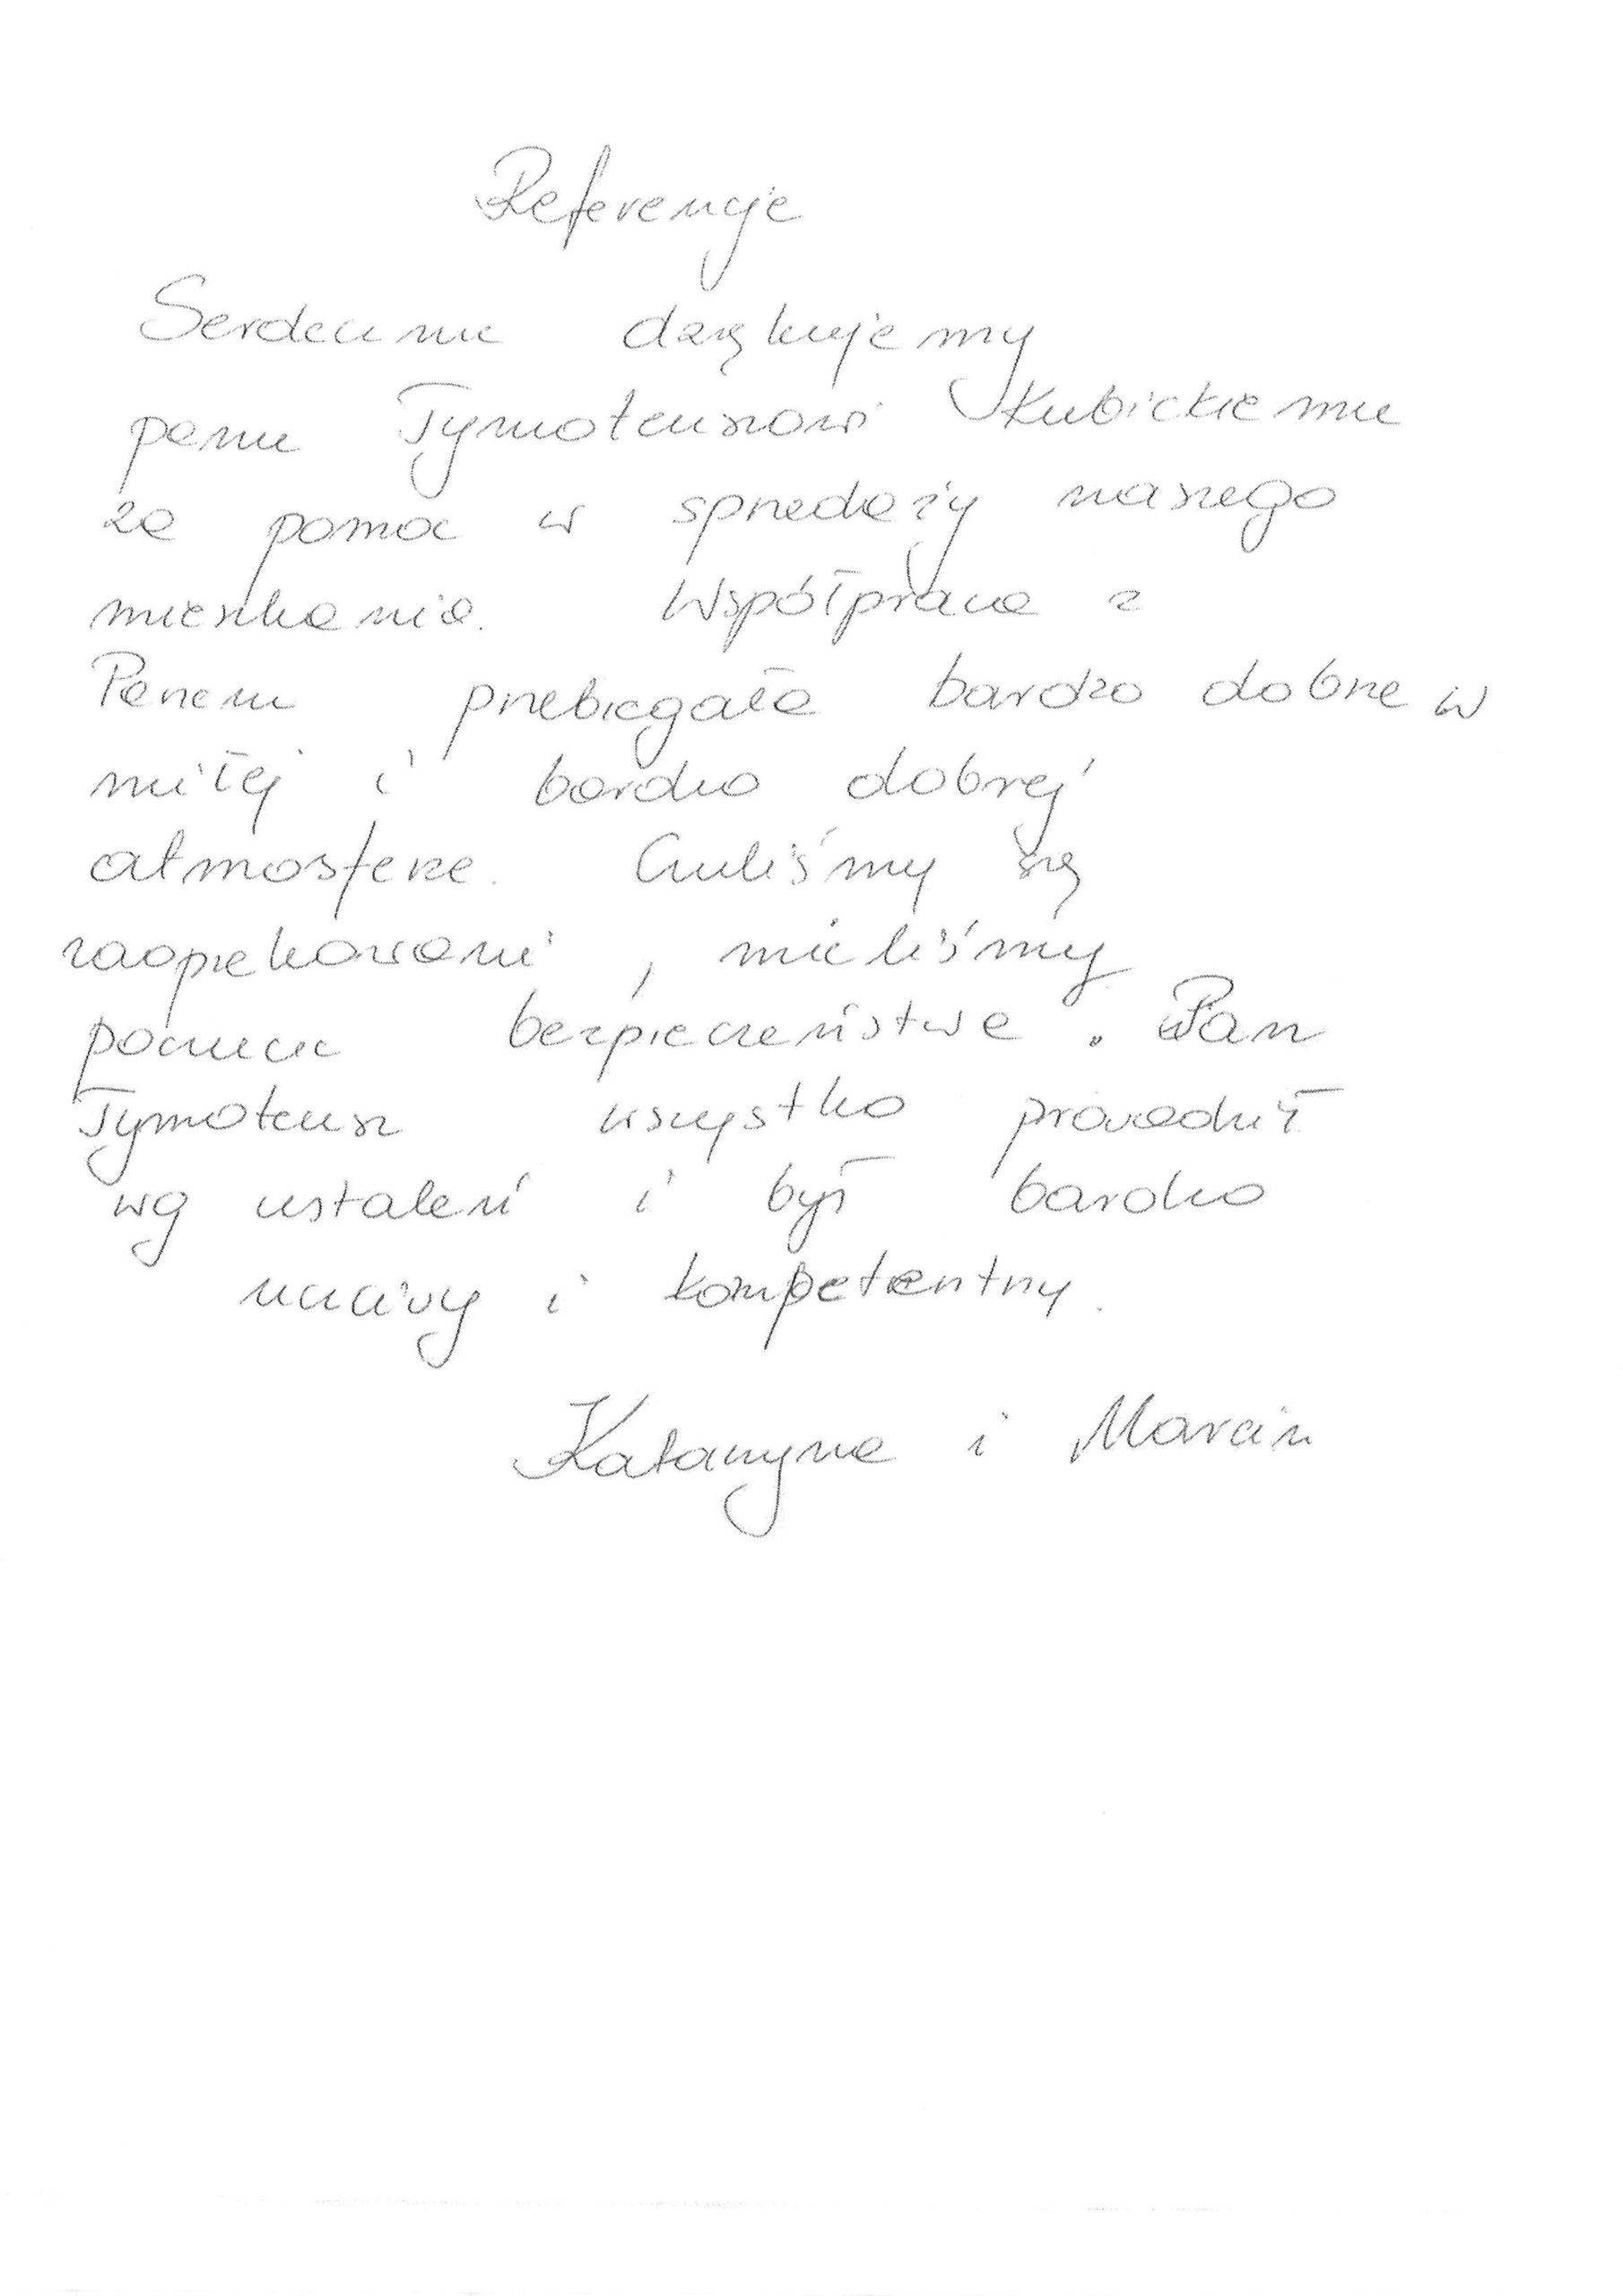 Referencje
Serdecznie dziękujemy
panu Tymoteuszowi Kubickiemu
za pomoc w sprzedaży naszego
mieszkania. Współpraca z
Panem przebiegała bardzo dobrze w
miłej i bardzo dobrej
atmosferze. Czuliśmy się
zaopiekowani, mieliśmy
poczucie bezpieczeństwa. Pan
Tymoteusz wszystko prowadził
wg ustaleń i był bardzo
uczciwy i kompetentny.
Katarzyna i Marcin